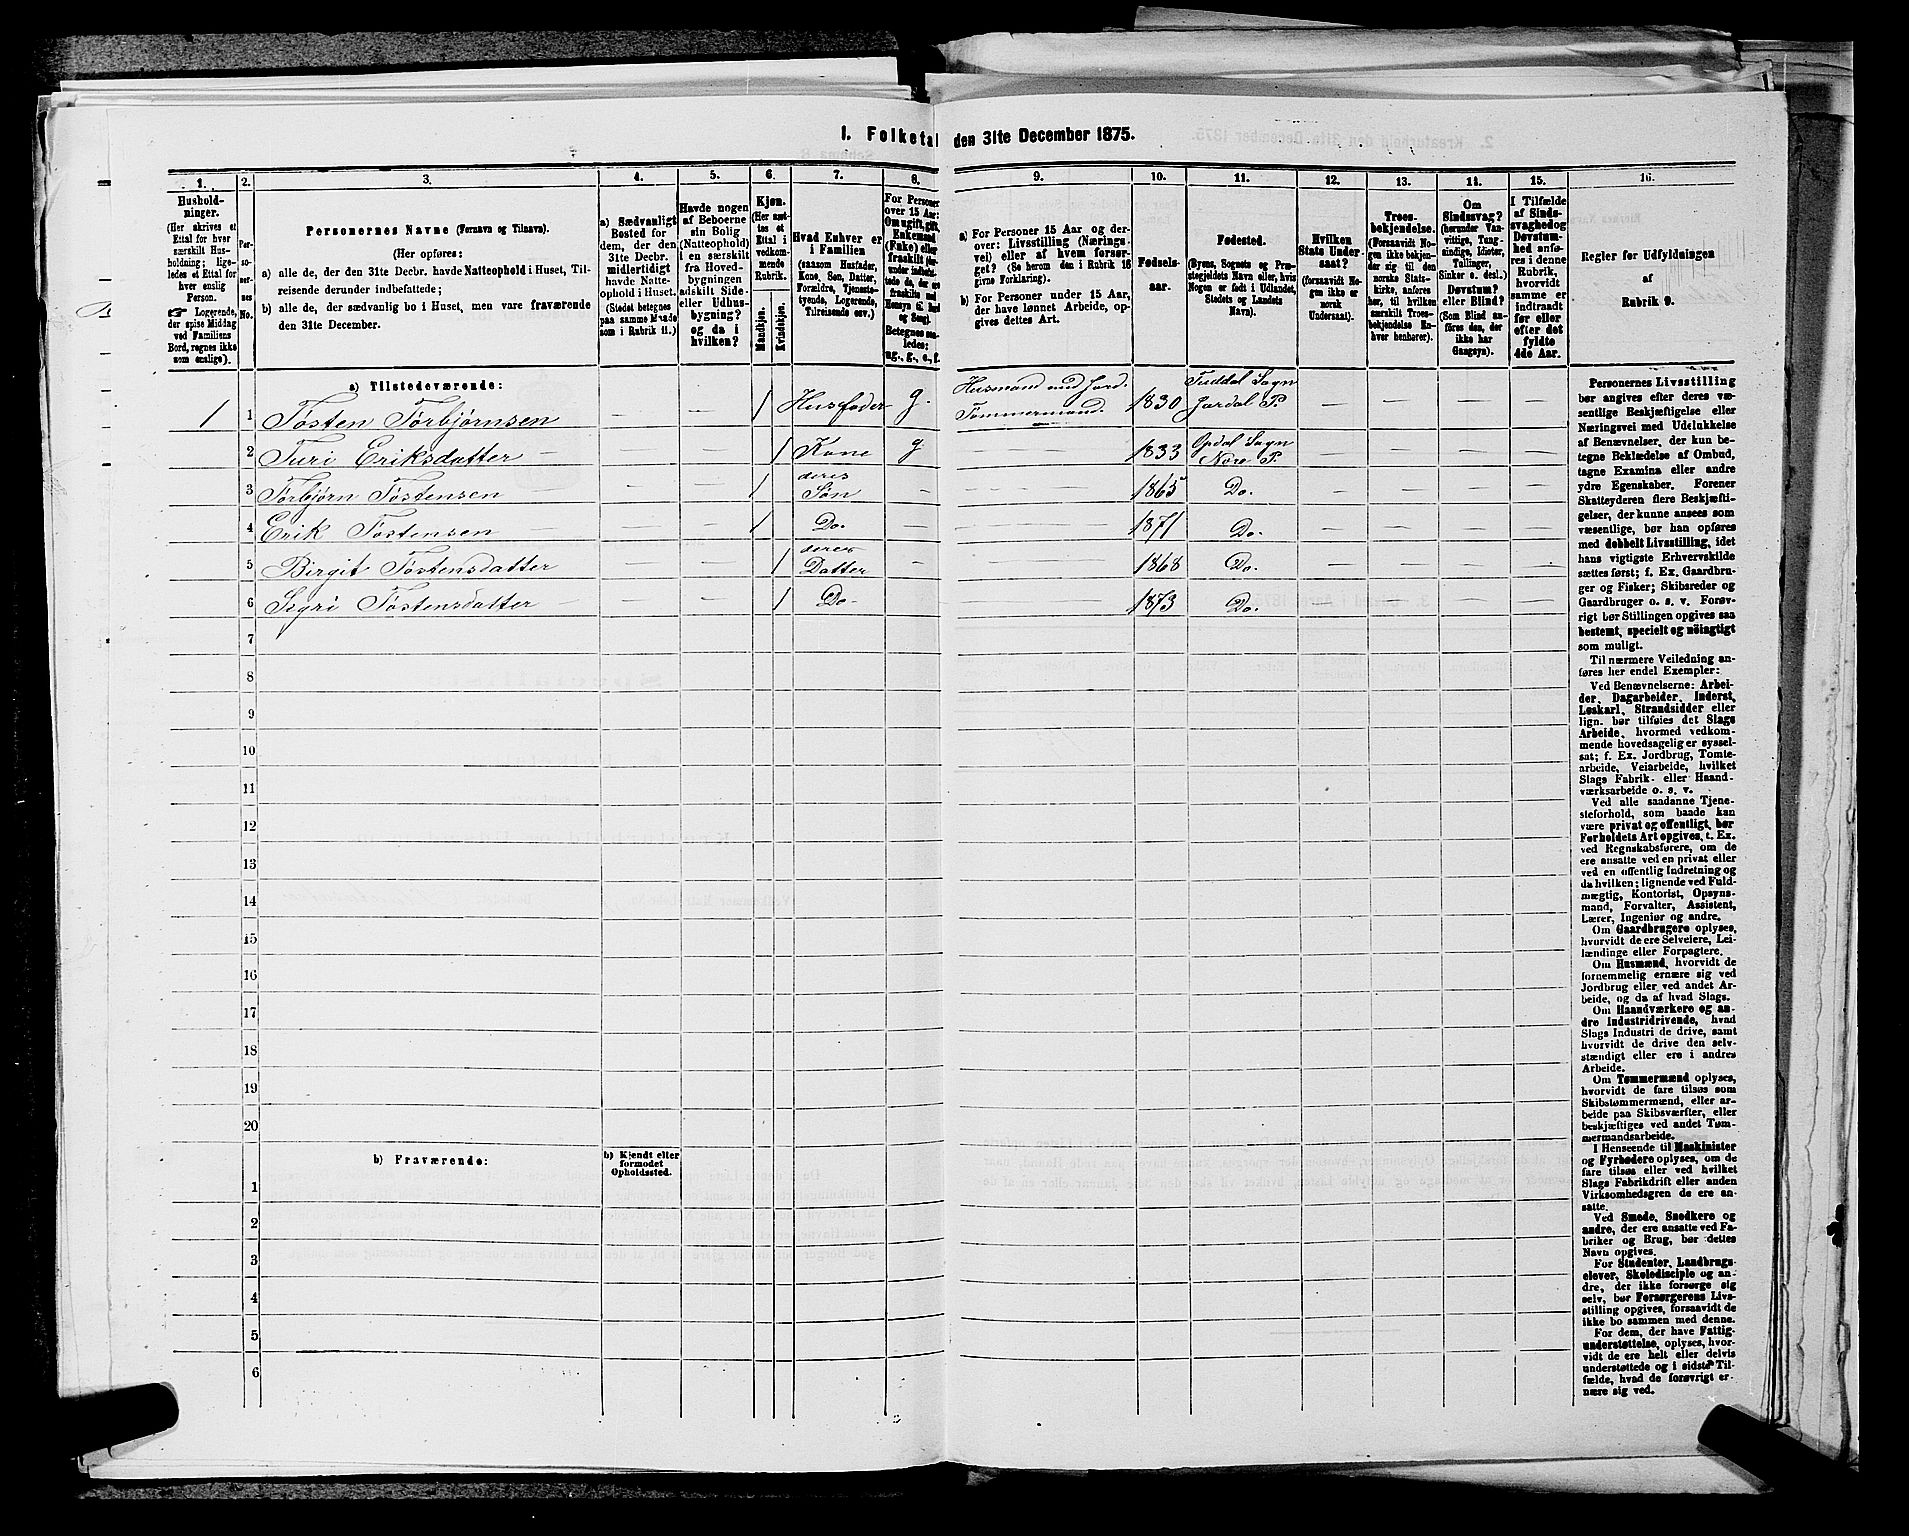 1. Folketal den 31te December 1875.
1.
Hushold-
ninger.
(Her skrives et
Ettal for hver
særskilt Hus-
holdning; lige-
ledes et Ettal for
hver enslig
Person.
☛ Logerende,
der spise Middag
ved Familiens
Bord, regnes ikke
som enslige).
2.
Per-
so-
ner-
nes
No.
3.
Personernes Navne (Fornavn og Tilnavn).
(Her opføres:
a) alle de, der den 31te Decbr. havde Natteophold i Huset, Til-
reisende derunder indbefattede;
b) alle de, der sædvanlig bo i Huset, men vare fraværende
den 31te December.
4.
a) Sædvanligt
Bosted for
dem, der den
31te Decbr.
midlertidigt
havde Natte-
ophold i Huset.
(Stedet betegnes
paa samme Maade
som i Rubrik 11.)
5.
Havde nogen
af Beboerne
sin Bolig
(Natteophold)
i en særskilt
fra Hoved-
bygningen
adskilt Side-
eller Udhus-
bygning?
og da i
hvilken?
6.
Kjøn.
(Her sæt-
tes et
Ettal i
vedkom-
mende
Rubrik.
Mandkjøn.
Kvindekjøn.
7.
Hvad Enhver er
i Familien
(saasom Husfader,
Kone, Søn, Datter,
Forældre, Tjeneste-
tyende, Logerende,
Tilreisende osv.)
8.
For Personer
over 15 Aar:
Om ugift, gift,
Enkemand
(Enke) eller
fraskilt
Betegnes saa-
ledes:
ug., g., e., f.
9.
a) For Personer 15 Aar og der-
over: Livsstilling (Nærings-
vei) eller af hvem forsør-
get? (Se herom den i Rubrik 16
givne Forklaring).
b) For Personer under 15 Aar,
der have lønnet Arbeide, op-
gives dettes Art.
10.
Fødsels-
aar.
11.
Fødested.
(Byens, Sognets og Præ-
stegjeldets Navn eller, hvis
Nogen er født i Udlandet,
Stedets og Landets
Navn).
12.
Hvilken
Stats Under-
saat?
(forsaavidt No-
gen ikke er
norsk
Undersaat).
13.
Troes-
bekjendelse.
(Forsaavidt No-
gen ikke bekjen-
der sig til den
norske Stats-
kirke, anføres
her, til hvilken
særskilt Troes-
bekjendelse En-
hver henhører).
14.
Om
Sindssvag?
(herunder Van-
vittige, Tung-
sindige, Idioter,
Tullinger,
Sinker o. desl.)
Døvstum?
eller Blind?
(Som Blind an-
føres den, der
ikke har
Gangsyn).
15.
I Tilfælde
af Sinds-
svaghed og
Døvstum-
hed anfø-
res i denne
Rubrik,
hvorvidt
samme er
indtraadt
før eller
efter det
fyldte
4de Aar.
16.
Regler for Udfyldningen
af
Rubrik 9.
a) Tilstedeværende:
1 1 Tosten Torbjørnsen — — 1 Husfader g. Husmand med Jord. Tømmermand. 1830 Tuddal Sogn Jørdal P. — — — —
2 Turi Eriksdatter — — 1 Kone g — 1833 Opdal Sogn Nore P. — — — —
3 Torbjørn Tostensen — — 1 deres Søn — — 1865 Do. — — — —
4 Erik Tostensen — — 1 Do. — — 1871 Do. — — — —
5 Birgit Tostensdatter — — 1 deres Datter — — 1868 Do. — — — —
6 Sigri Tostensdatter — — 1 Do — — 1873 Do. — — — —
7
8
9
10
11
12
13
14
15
16
17
18
19
20
b) Fraværende:
b) Kjendt eller
formodet
Opholdssted.
1
2
3
4
5
6
Personernes Livsstilling
bør angives efter deres væ-
sentlige Beskjæftigelse eller
Næringsvei med Udelukkelse
af Benævnelser, der kun be-
tegne Beklædelse af Ombud,
tagne Examina eller andre
ydre Egenskaber. Forener
Skatteyderen flere Beskjæfti-
gelser, der kunne ansees som
væsentlige, bør han opføres
med dobbelt Livsstilling, idet
hans vigtigste Erhvervskilde
sættes først; f. Ex. Gaardbru-
ger og Fisker; Skibsreder og
Gaardbruger o. s. v. Forøv-
rigt bør Stillingen opgives saa
bestemt, specielt og nøiagtigt
som muligt.
Til nærmere Veiledning an-
føres her endel Exempler:
Ved Benævnelserne: Arbei-
der, Dagarbeider, Inderst,
Løskarl, Strandsidder eller
lign. bør tilføies det Slags
Arbeide, hvormed vedkom-
mende hovedsagelig er syssel-
sat; f. Ex. Jordbrug, Tomte-
arbeide, Veiarbeide, hvilket
Slags Fabrik- eller Haand-
værksarbeide o. s. v.
Ved alle saadanne Tjene-
steforhold, som baade kan
være privat og offentligt, bør
Forholdets Art opgives, t. Ex.
ved Regnskabsførere, om de
ere ansatte ved en privat eller
ved en offentlig Indretning og
da hvilken; lignende ved Fuld-
mægtig, Kontorist, Opsyns-
mand, Forvalter, Assistent,
Lærer, Ingeniør og andre.
Om Gaardbrugere oplyses,
hvorvidt de ere Selveiere, Lei-
lændinge eller Forpagtere.
Om Husmænd, hvorvidt de
fornemmelig ernære sig ved
Jordbrug eller ved andet Ar-
beide, og da af hvad Slags.
Om Haandværkere og an-
dre Industridrivende, hvad
Slags Industri de drive, samt
hvorvidt de drive den selv-
stændigt eller ere i andres
Arbeide.
Om Tømmermænd oplyses,
hvorvidt de fare tilsøs som
Skibstømmermænd, eller ar-
beide paa Skibsværfter, eller
beskjæftiges ved andet Tøm-
mermandsarbeide.
I Henseende til Maskinister
og Fyrbødere oplyses, om de
fare tilsøs eller ved hvilket
Slags Fabrikdrift eller anden
Virksomhedsgren de ere an-
satte.
Ved Smede, Snedkere og
andre, der ere ansatte ved Fa-
briker og Brug, bør dettes
Navn opgives.
For Studenter, Landbrugs-
elever, Skoledisciple og an-
dre, der ikke forsørge sig
selv, bør Forsørgerens Livs-
stilling opgives, forsaavidt de
ikke bo sammen med denne.
For dem, der have Fattig-
understøttelse, oplyses, hvor-
vidt de ere helt eller delvis
understøttede og i sidste Til-
fælde, hvad de forøvrigt er-
nære sig ved.